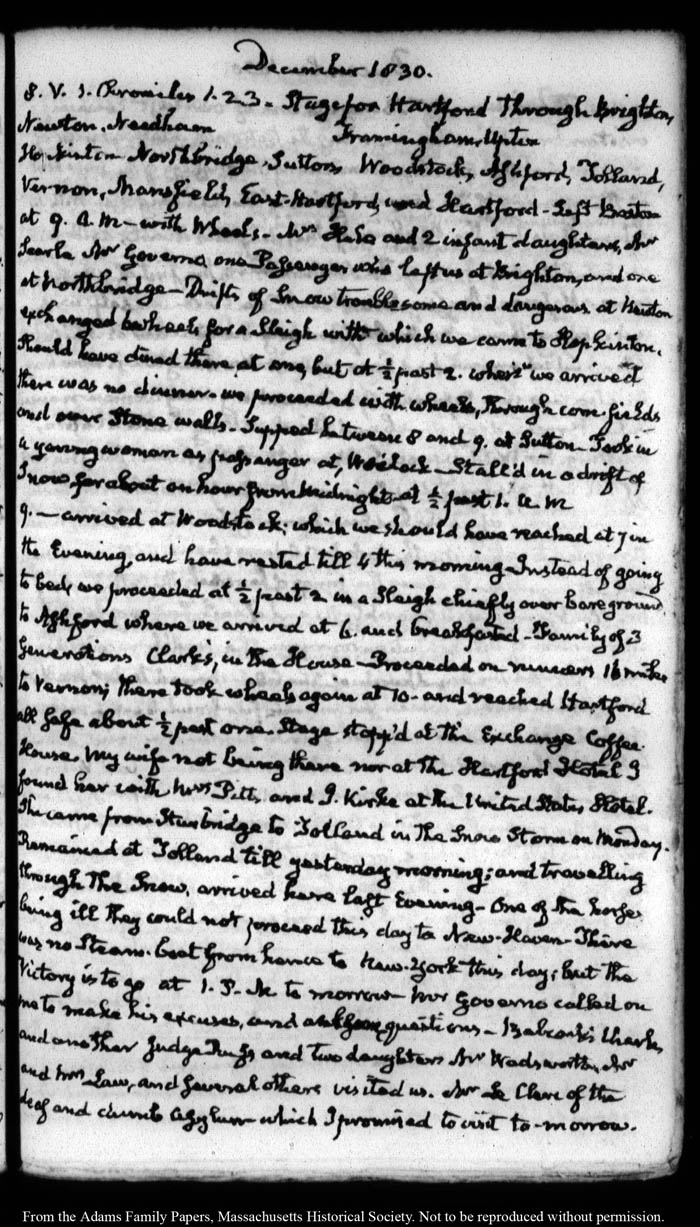 December 1830.
8. V. 1. Chronicles 1. 2. 3. Stage for Hartford Through Brighton,
Newton, Needham Framingham, Upton
Hopkinton Northbridge, Sutton, Woodstock, Ashford, Tolland,
Vernon, Mansfield, East-Hartford, and Hartford - Left Boston
at 9. A.M - with Wheels. Mrs and 2 infant daughters, Mr
Searle Mr Governo, one Passenger who left us at Brighton, and one
at Northbridge - Drifts of Snow troublesome and dangerous at Newton
exchanged wheels for a Sleigh with which we came to Hopkinton.
Should have dined there at one, but at ½ past 2. when we arrived
there was no dinner. we proceeded with wheels, through corn fields
and over Stone walls - Supped between 8 and 9. at Sutton - Took in
a young woman as passenger at, - Stall'd in a drift of
Snow for about an hour from Midnight - at ½ past 1. A.M
9. — arrived at Woodstock; which we should have reached at 7 in
the Evening, and have rested till 4 this morning - Instead of going
to bed, we proceeded at ½ past 2 in a Sleigh chiefly over bare ground
to Ashford where we arrived at 6. and breakfasted - Family of 3
Generations Clark's, in the House - Proceeded on runners 16 miles
to Vernon; there took wheels again at 10 - and reached Hartford
all safe about ½ past one. Stage stopp'd at the Exchange Coffee
House. My wife not being there nor at the Hartford Hotel I
found her with Mrs Pitts, and J. Kirke at the United States Hotel.
She came from Sturbridge to Tolland in the Snow Storm on Monday.
Remained at Tolland till yesterday morning; and travelling
through the Snow, arrived here last Evening - One of the horses
being ill they could not proceed this day to New-Haven - There
was no Steam-boat from hence to New-York this day; but the
Victory is to go at 1. P. M to morrow - Mr Governo called on
me to make his excuses, and questions - Babcock; Charles
and another Judge and two daughters Mr Wadsworth, Mr
and Mrs Law, and several others visited us. Mr Le Clerc of the
deaf and dumb asylum which I promised to visit to-morrow.
From the Adams Family Papers, Massachusetts Historical Society. Not to be reproduced without permission.